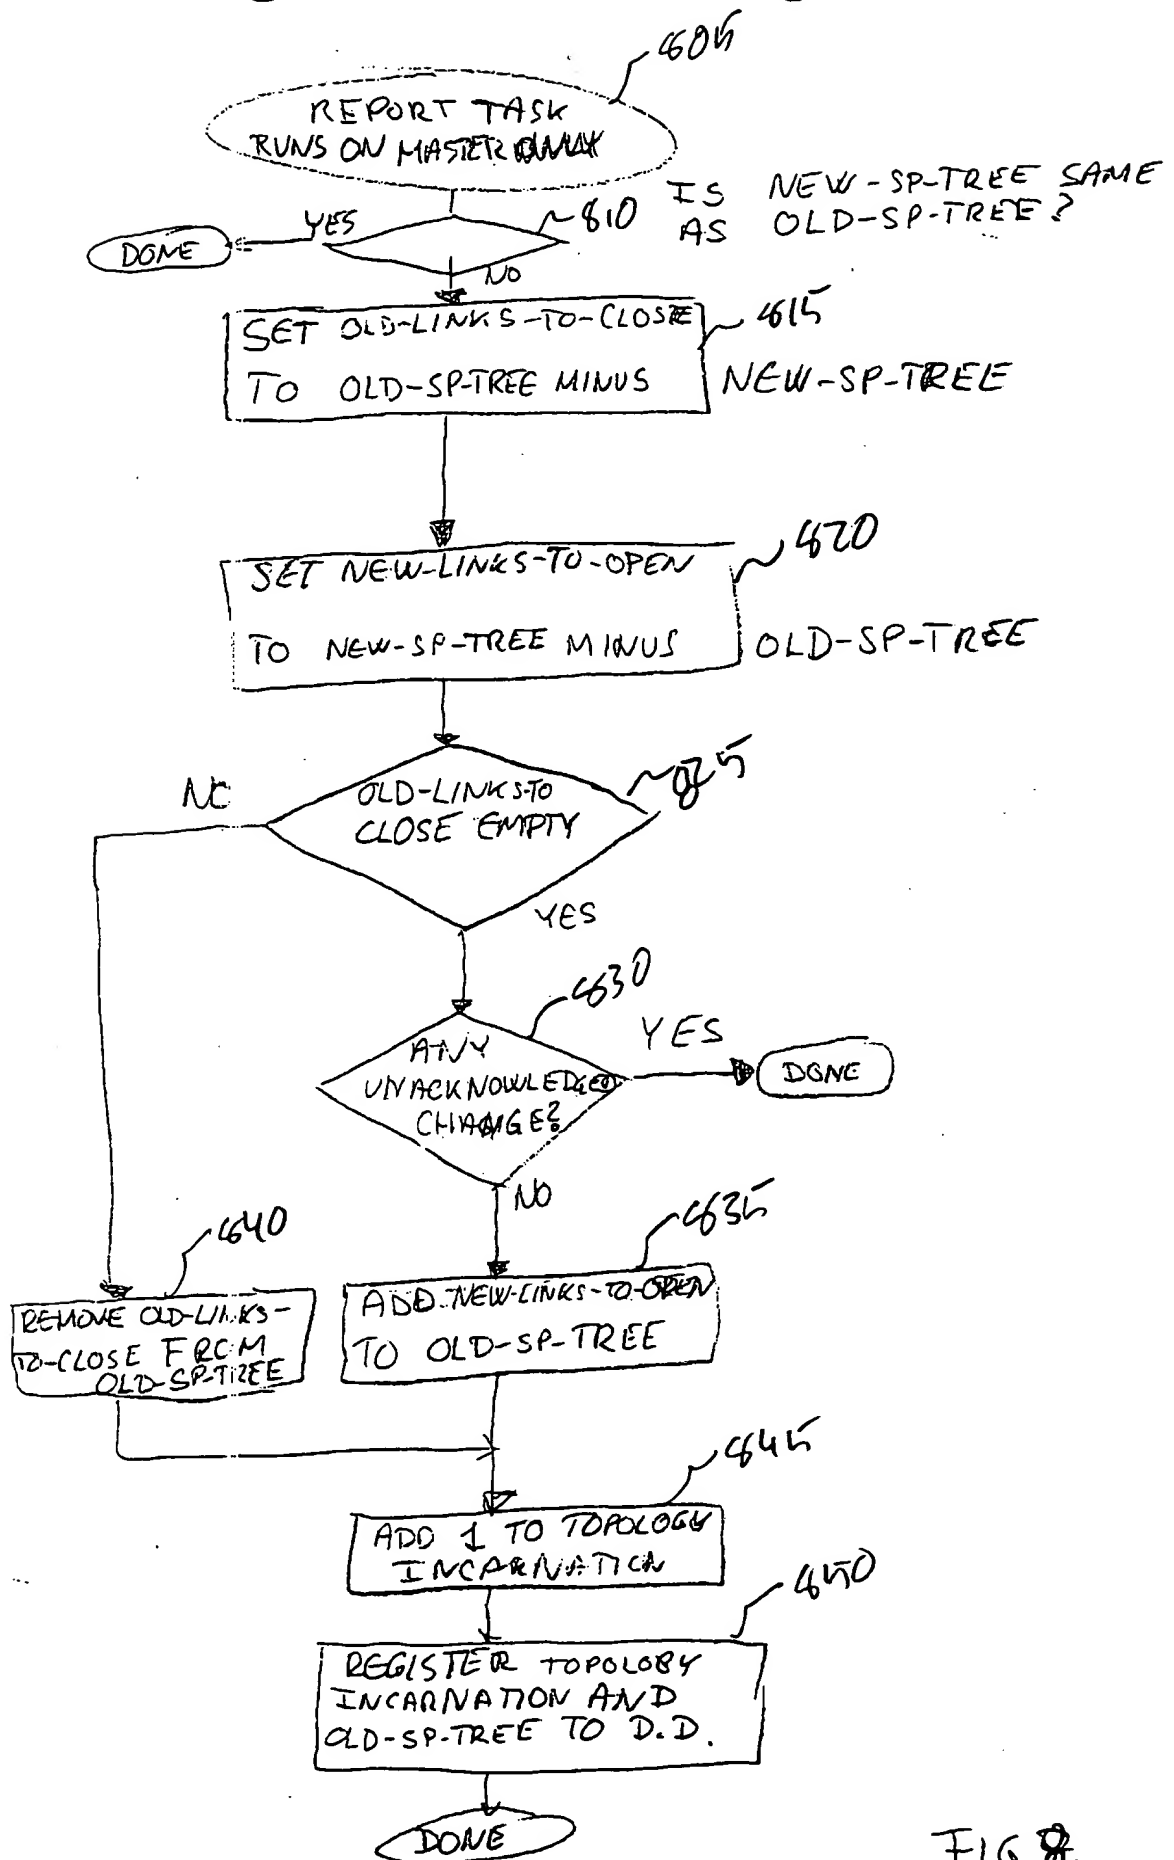 805
REPORT TASK
RUNS ON MASTER ONLY
810
IS NEW-SP-TREE SAME
AS OLD-SP-TREE?
YES
DONE
NO
815
SET OLD-LINKS-TO-CLOSE
TO OLD-SP-TREE MINUS NEW-SP-TREE
820
SET NEW-LINKS-TO-OPEN
TO NEW-SP-TREE MINUS OLD-SP-TREE
825
NO
OLD-LINKS-TO
CLOSE EMPTY
YES
830
ANY
UNACKNOWLEDGED
CHANGE?
YES
DONE
NO
835
840
ADD NEW-LINKS-TO-OPEN
TO OLD-SP-TREE
REMOVE OLD-LINKS-
TO-CLOSE FROM
OLD-SP-TREE
845
ADD 1 TO TOPOLOGY
INCARNATION
850
REGISTER TOPOLOGY
INCARNATION AND
OLD-SP-TREE TO D.D.
DONE
FIG 8